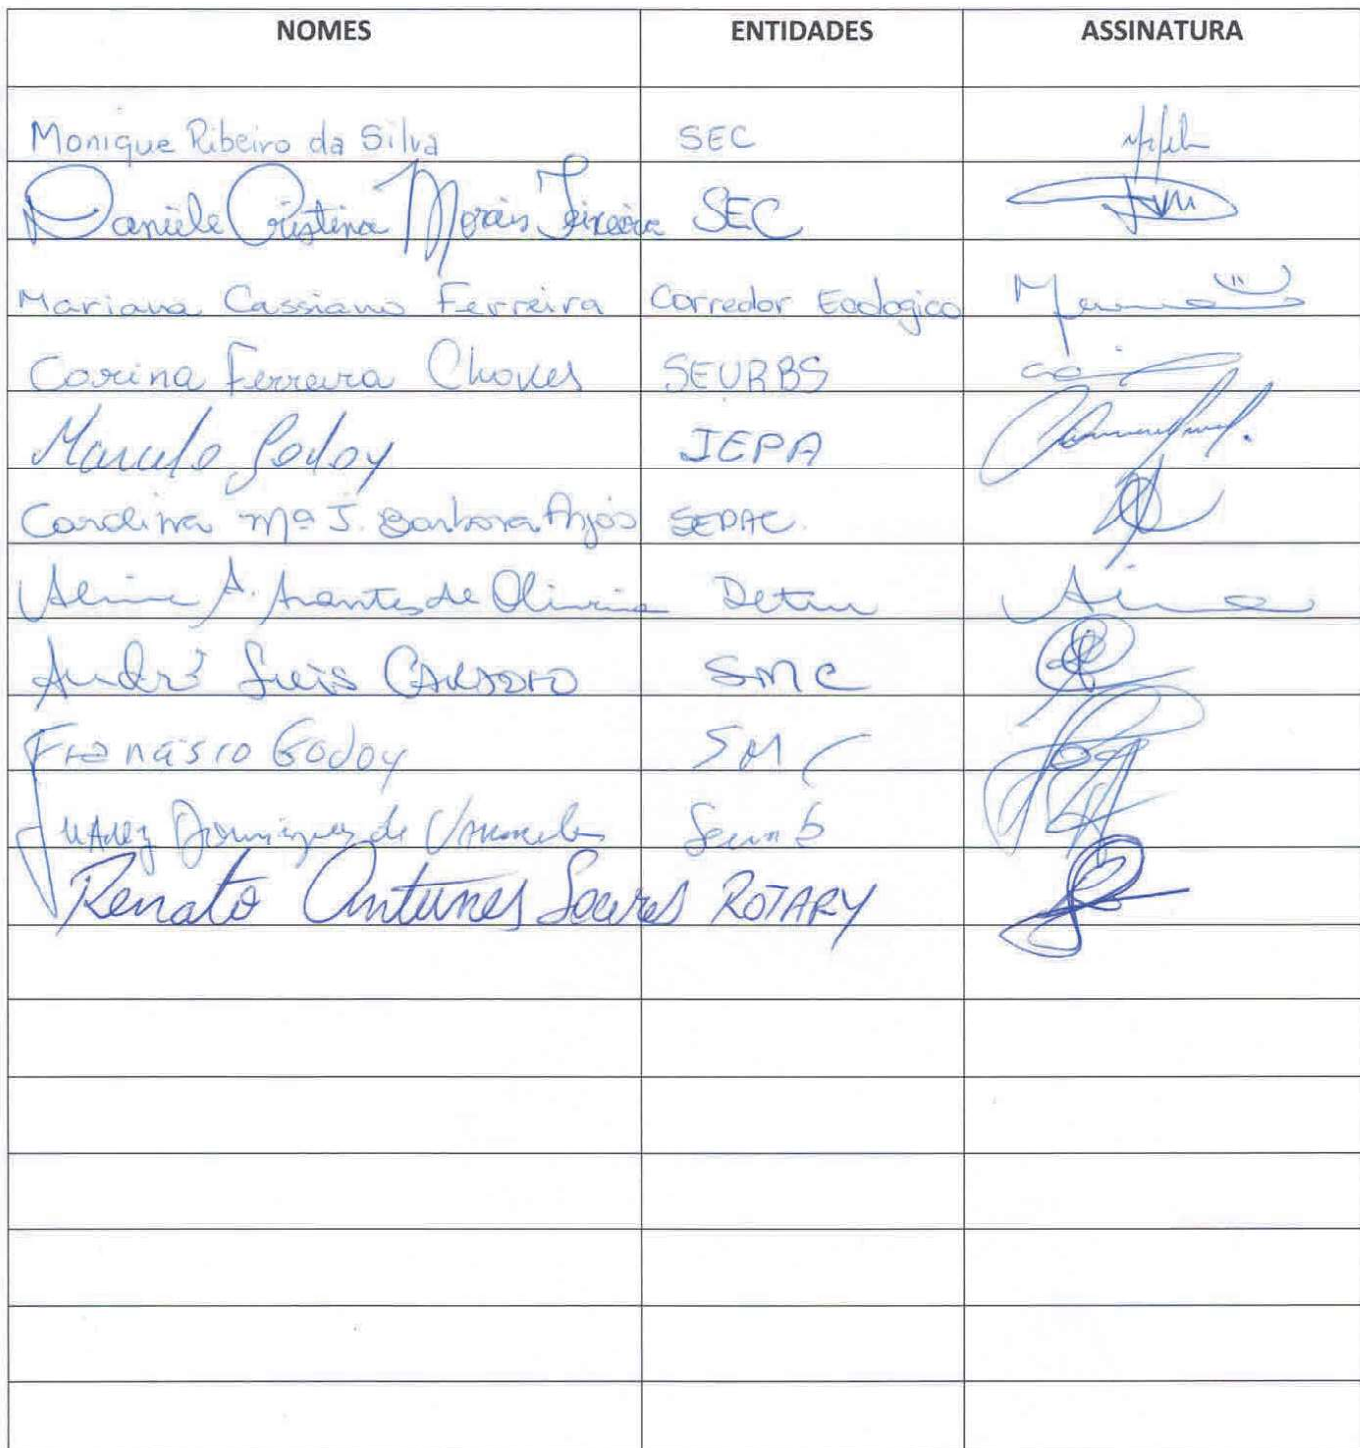 NOMES ENTIDADES ASSINATURA
Monique Ribeiro da Silva SEC
Daniele Cristina Morais Teixeira SEC
Mariana Cassiano Ferreira Corredor Ecologico
Carina Ferreira Chaves SEURBS
Marcelo Godoy IEPA
Carolina Mª J. Barbosa Anjos SEPAC
Aline A. Arantes de Oliveira Detur
André Luis Cardoso SMC
Francisco Godoy SMC
Juarez Domingues de Vasconcelos
Renato Antunes Soares ROTARY